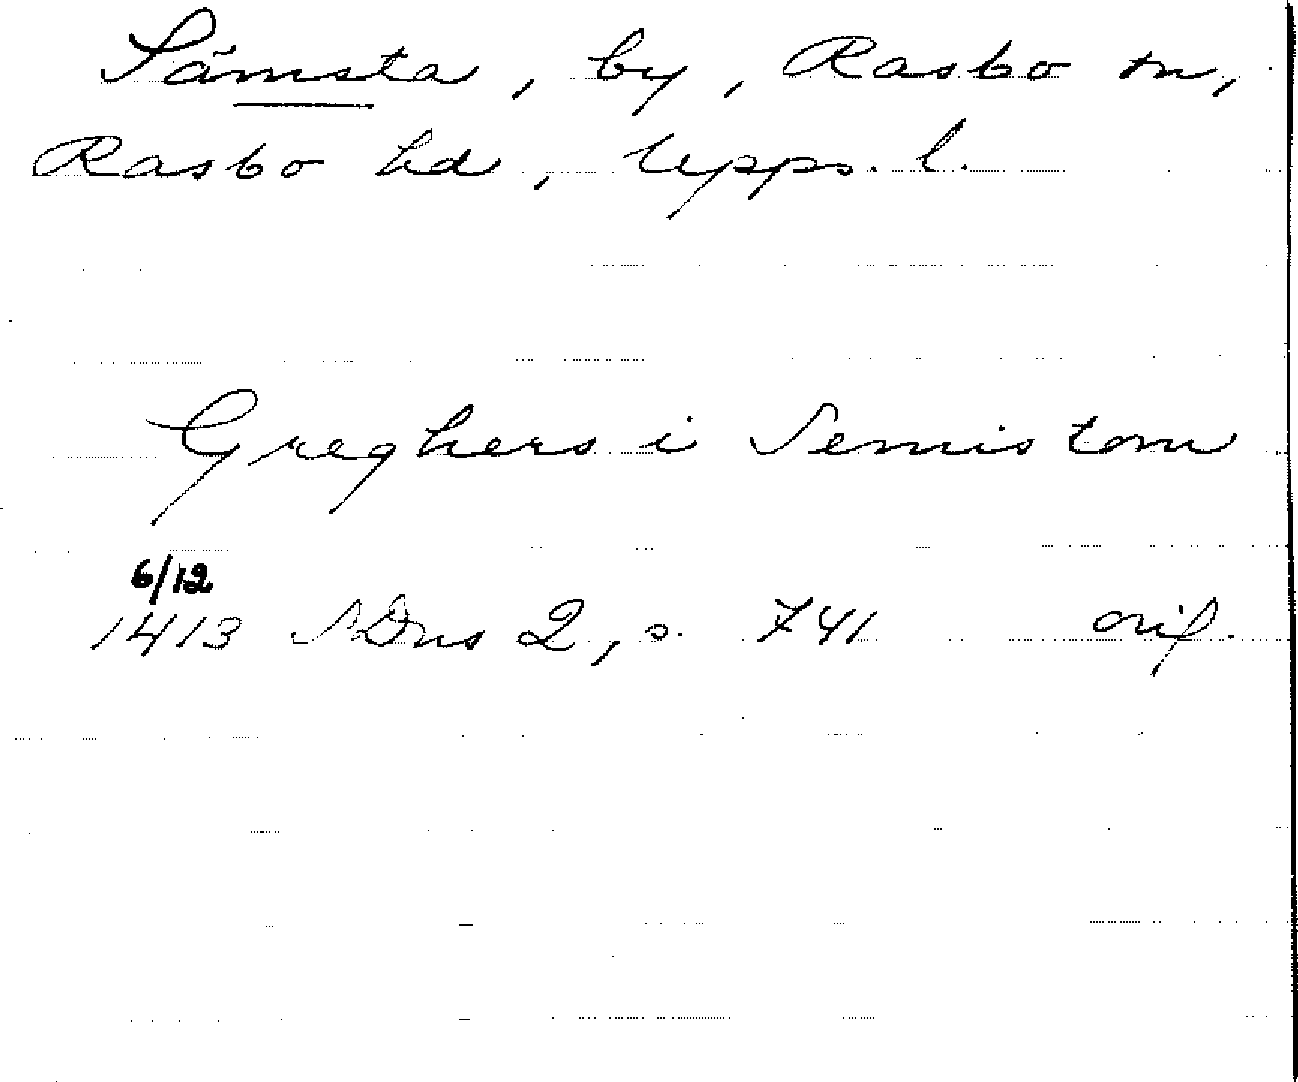 Sämsta, by, Rasbo sn,
Rasbo hd, Upps. l.
Greghers i Semistom
6/12
1413 SDns 2, s. 741 orig.